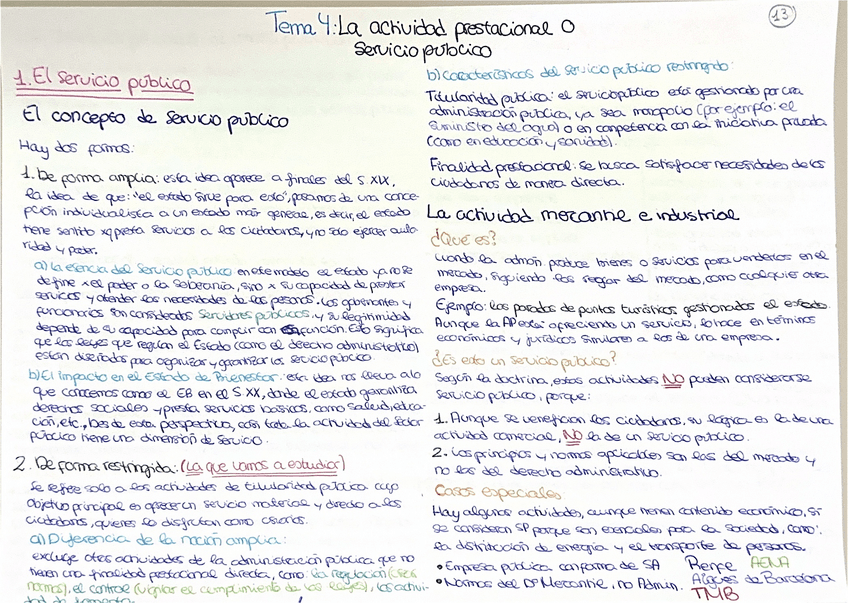 Tema 4: La actividad prestacional o
servicio público
13
1. El servicio público
El concepto de servicio público
Hay dos formas:
1. De forma amplia: esta idea aparece a finales del S. XIX,
la idea de que: "el estado sirve para esto", pasamos de una conce-
pción individualista a un estado más general, es decir, el estado
tiene sentido xq presta servicios a los ciudadanos, y no solo ejercer auto-
ridad y poder.
a) La esencia del Servicio público en este modelo el estado ya no se
define x el poder o la soberanía, sino x su capacidad de prestar
servicios y atender las necesidades de las personas. Los gobernantes y
funcionarios son considerados Servidores públicos y su legitimidad
depende de su capacidad para cumplir con función. Esto significa
que las leyes que regulan el Estado (como el derecho administrativo)
están diseñadas para organizar y garantizar los servicio público.
b) El impacto en el Estado de Bienestar: esta idea nos lleva a lo
que conocemos como el EB en el S XX, donde el estado garantiza
derechos sociales y presta servicios básicos, como salud, educa-
ción, etc., Desde esta perspectiva, casi toda la actividad del sector
público tiene una dimensión de servicio.
2. De forma restringida: (La que vamos a estudiar)
Se refiere solo a las actividades de titularidad pública cuyo
objetivo principal es ofrecer un servicio material y directo a los
ciudadanos, quienes lo disfrutan como usuarios.
a) Diferencia de la noción amplia:
excluye otras actividades de la administración pública que no
tienen una finalidad prestacional directa, como: la regulación (crear
normas), el control (vigilar el cumplimiento de las leyes), las activi-
dad de fomento
b) Características del servicio público restringido:
Titularidad pública: el servicio público está gestionado por una
administración pública, ya sea monopolio (por ejemplo: el
suministro del agua) o en competencia con la iniciativa privada
(como en educación y sanidad).
Finalidad prestacional: se busca satisfacer necesidades de los
ciudadanos de manera directa.
La actividad mercantil e industrial
¿Qué es?
Cuando la admón. produce bienes o servicios para venderlos en el
mercado, siguiendo las reglas del mercado, como cualquier otra
empresa.
Ejemplo: los parados de puntos turísticos gestionados el estado.
Aunque la AP está ofreciendo un servicio, lo hace en términos
económicos y jurídicos similares a los de una empresa.
¿Es esto un servicio público?
Según la doctrina, estas actividades NO pueden considerarse
servicio público, porque:
1. Aunque se benefician los ciudadanos, su lógica es la de una
actividad comercial, NO la de un servicio público.
2. Los principios y normas aplicables son las del mercado y
no las del derecho administrativo.
Casos especiales
Hay algunos actividades, aunque tienen contenido económico, sí
se consideran SP porque son esenciales para la sociedad, como:
la distribución de energía y el transporte de personas.
• Empresa pública con forma de SA Renfe AENA
• Normas del Dº Mercantil, no Admin. Aigües de Barcelona
TMB